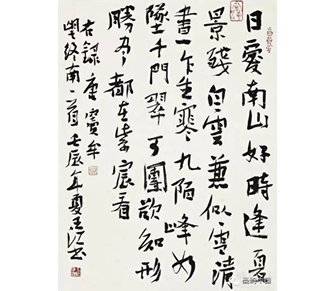 日愛南山好時逢夏
景殘白雲兼似雪清
畫一乍生寒九陌峰如
墜千門翠可團欲知形
勝尽都在紫宸看
右録唐竇牟
望終南一首壬辰年夏